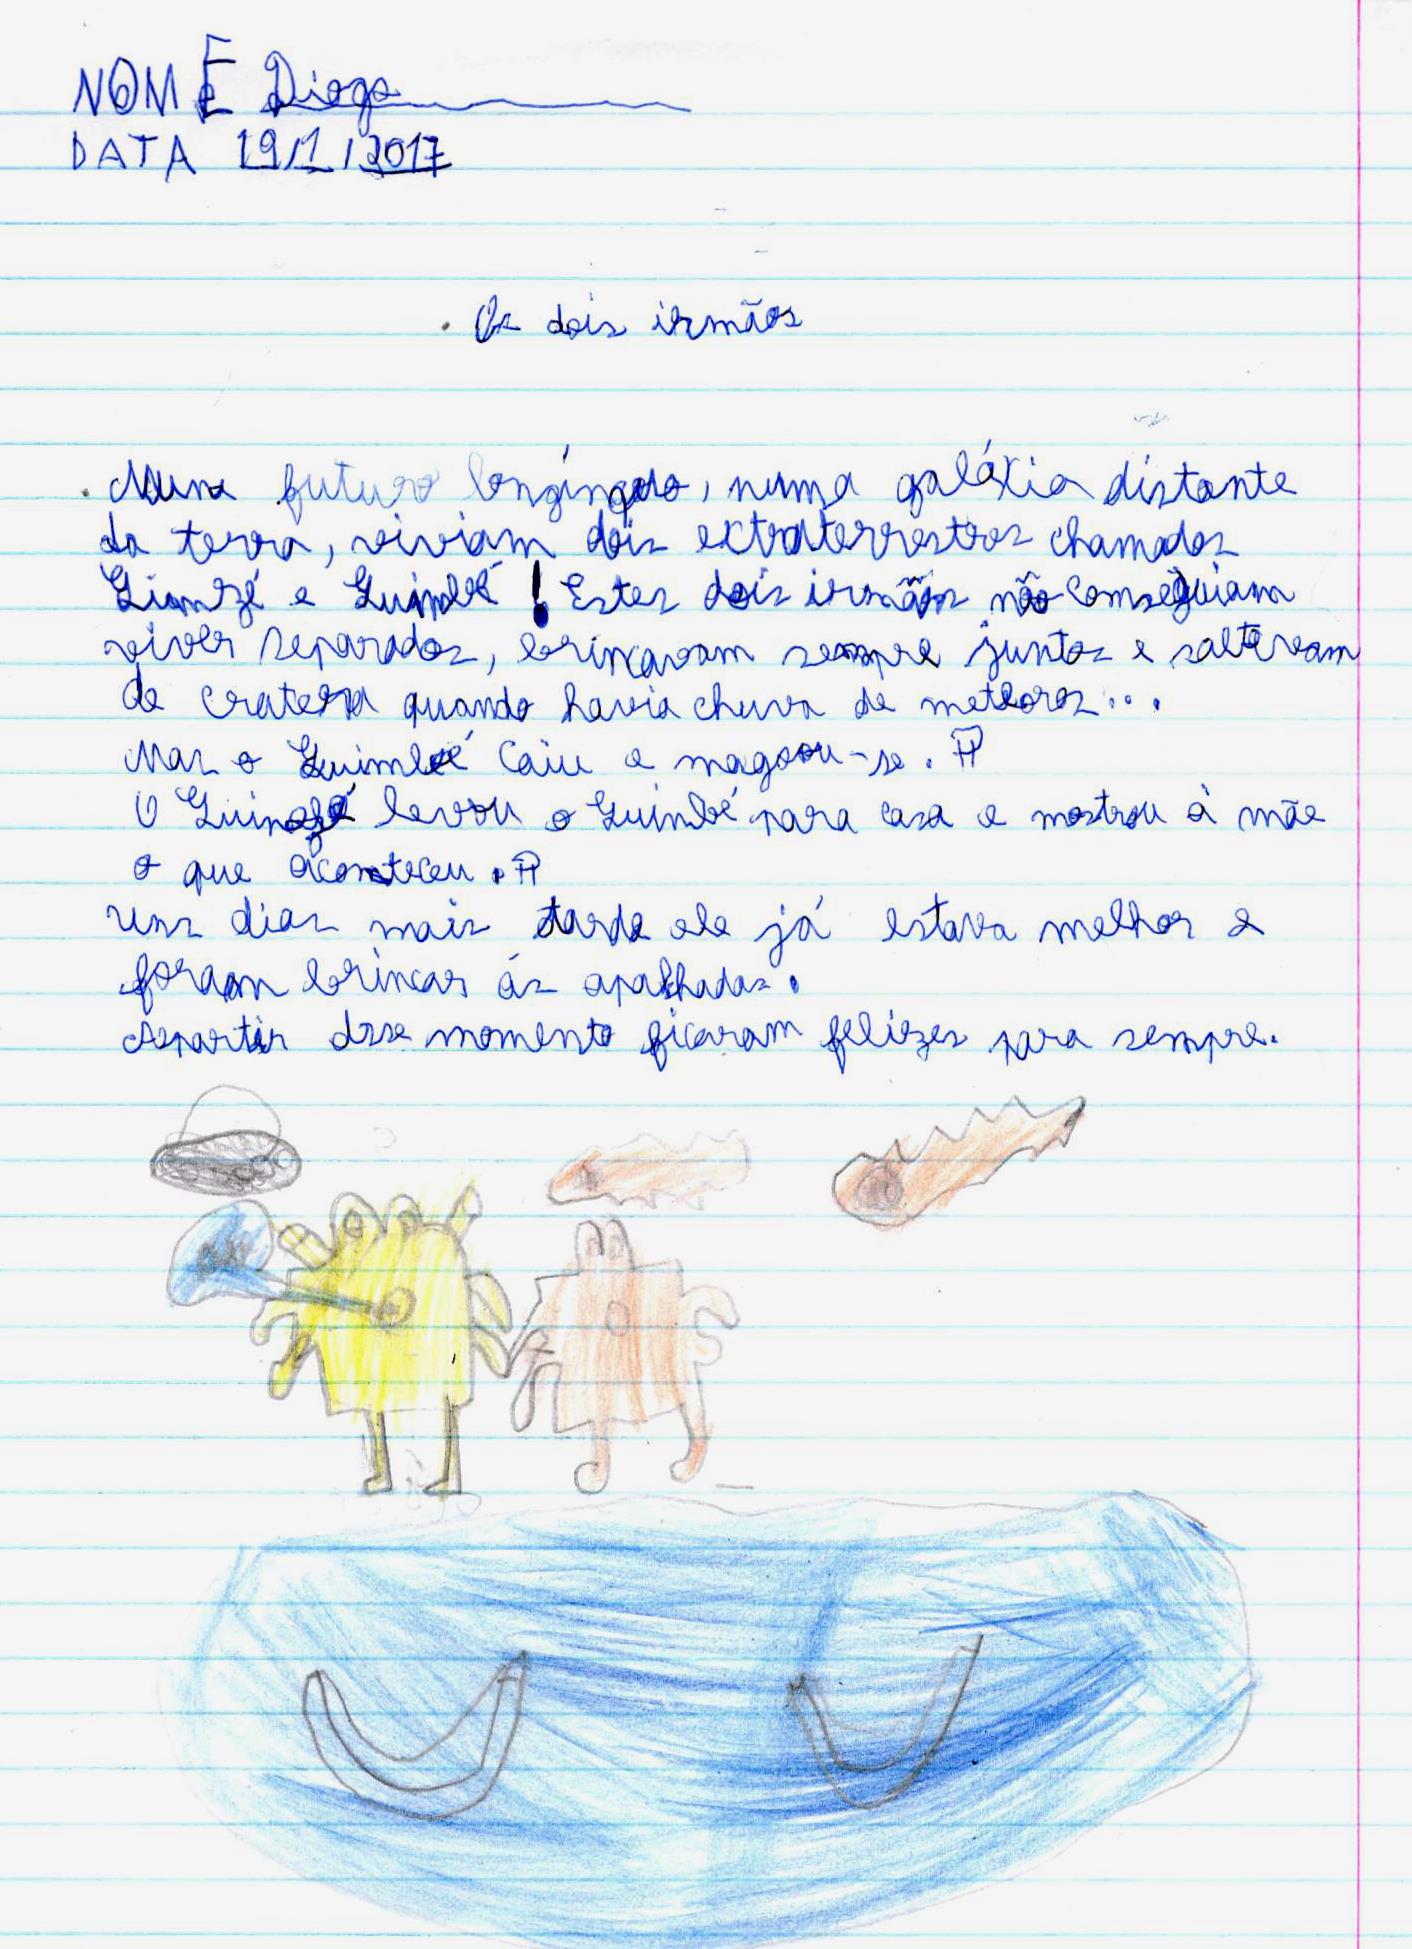 NOME Diogo
DATA 19/1/2017
Os dois irmãos
Num futuro longínquo, numa galáxia distante
da terra, viviam dois extraterrestres chamados
e Guimbé! Estes dois irmãos não conseguiam
viver separados, brincavam sempre juntos e saltavam
de cratera quando havia chuva de meteoros...
Mas o Guimbé caiu e magoou-se.
O levou o Guimbé para casa e mostrou à mãe
o que aconteceu.
uns dias mais tarde ele já estava melhor e
foram brincar ás apalhadas.
Apartir desse momento ficaram felizes para sempre.